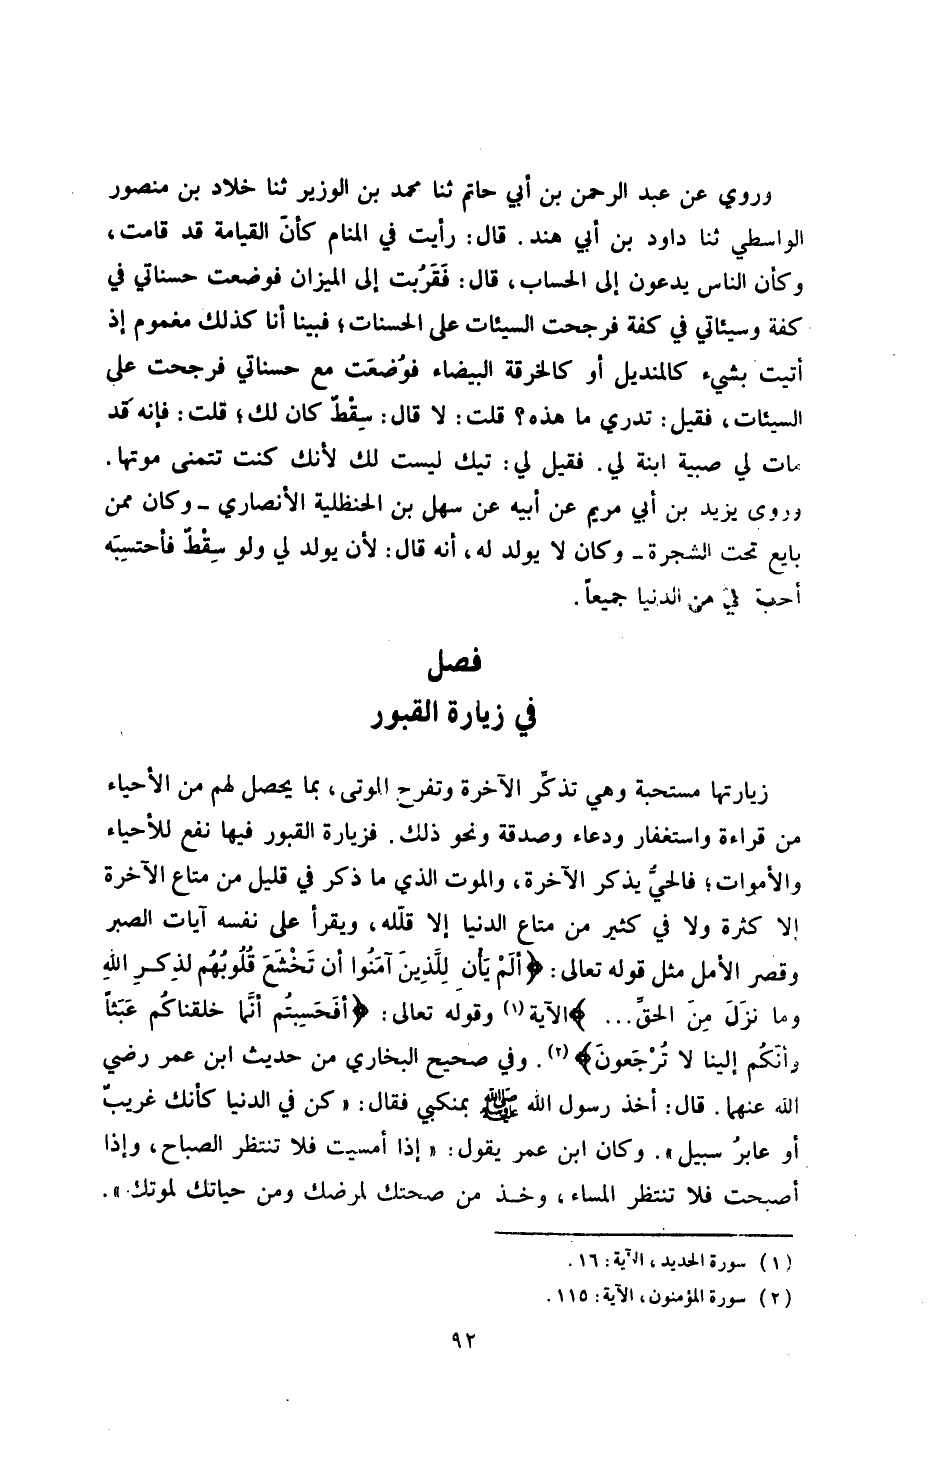 وروي عن عبد الرحمن بن أبي حاتم ثنا محمد بن الوزير ثنا خلاد بن منصور
الواسطي ثنا داود بن أبي هند. قال: رأيت في المنام كأنّ القيامة قد قامت،
وكأن الناس يدعون إلى الحساب، قال: فَقَرُبت إلى الميزان فوضعت حسناتي في
كفة وسيئاتي في كفة فرجحت السيئات على الحسنات؛ فبينا أنا كذلك مغموم إذ
أتيت بشيء كالمنديل أو كالخرقة البيضاء فوُضعَت مع حسناتي فرجحت على
السيئات، فقيل: تدري ما هذه؟ قلت: لا قال: سِقْطٌ كان لك؛ قلت: فإنه قد
مات لي صبية ابنة لي. فقيل لي: تيك ليست لك لأنك كنت تتمنى موتها.
وروى يزيد بن أبي مريم عن أبيه عن سهل بن الحنظلية الأنصاري ـ وكان ممن
بايع تحت الشجرة ـ وكان لا يولد له، أنه قال: لأن يولد لي ولو سِقْطٌ فأحتسِبَه
أحبّ لي من الدنيا جميعاً.
فصل
في زيارة القبور
زيارتها مستحبة وهي تذكِّر الآخرة وتفرح الموتى، بما يحصل لهم من الأحياء
من قراءة واستغفار ودعاء وصدقة ونحو ذلك. فزيارة القبور فيها نفع للأحياء
والأموات؛ فالحيُّ يذكر الآخرة، والموت الذي ما ذكر في قليل من متاع الآخرة
إلا كثرة ولا في كثير من متاع الدنيا إلا قلّله، ويقرأ على نفسه آيات الصبر
وقصر الأمل مثل قوله تعالى: ﴿أَلَمْ يَأن لِلَّذِينَ آمَنُوا أن تَخْشَعَ قُلُوبُهُم لذِكِرِ اللهِ
وما نزَلَ مِنَ الحقِّ... ﴾الآية (١) وقوله تعالى: ﴿أفَحَسِبتُم أنَّما خلقناكُم عَبَثاً
وأنَكُم إلينا لا تُرْجَعونَ﴾ (٢). وفي صحيح البخاري من حديث ابن عمر رضي
الله عنهما. قال: أخذ رسول الله ﷺ بمنكبي فقال: « كن في الدنيا كأنك غريبٌ
أو عابرُ سبيل ». وكان ابن عمر يقول: « إذا أمسيت فلا تنتظر الصباح، وإذا
أصبحت فلا تنتظر المساء، وخذ من صحتك لمرضك ومن حياتك لموتك ».
(١) سورة الحديد، الآية: ١٦.
(٢) سورة المؤمنون، الآية: ١١٥.
٩٢